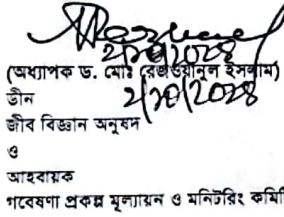 (অধ্যাপক ড. মোঃ রেজওয়ানুল ইসলাম)
ডীন
জীব বিজ্ঞান অনুষদ
ও
আহবায়ক
গবেষণা প্রকল্প মূল্যায়ন ও মনিটরিং কমিটি